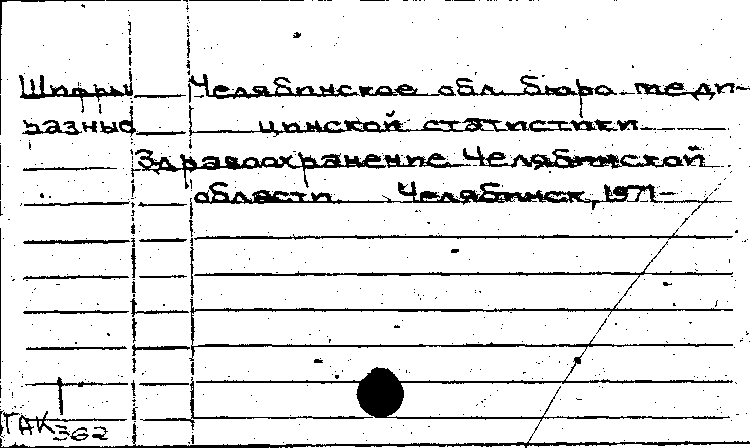 Шифры Челябинское обл. бюро меди-
разные цинской статистики.
Здравоохранение Челябинской
области. Челябинск, 1971-
ТАК 362